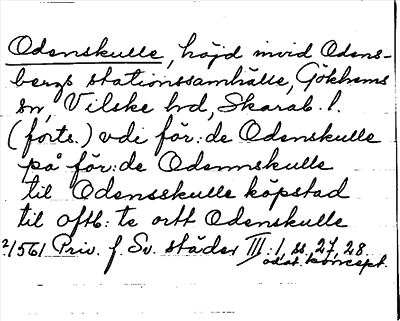 Odenskulle, höjd invid Odens-
bergs stationssamhälle, Gökhems
sn, Vilske hd, Skarab. l.
(forts.) vdi för:de Odenskulle
på för:de Odennskulle
til Odensskulle köpstad
til oftb: te ortt Odenskulle
2/1561 Priv. f. Sv. städer III:1, ss. 27, 28.
odat. koncept.